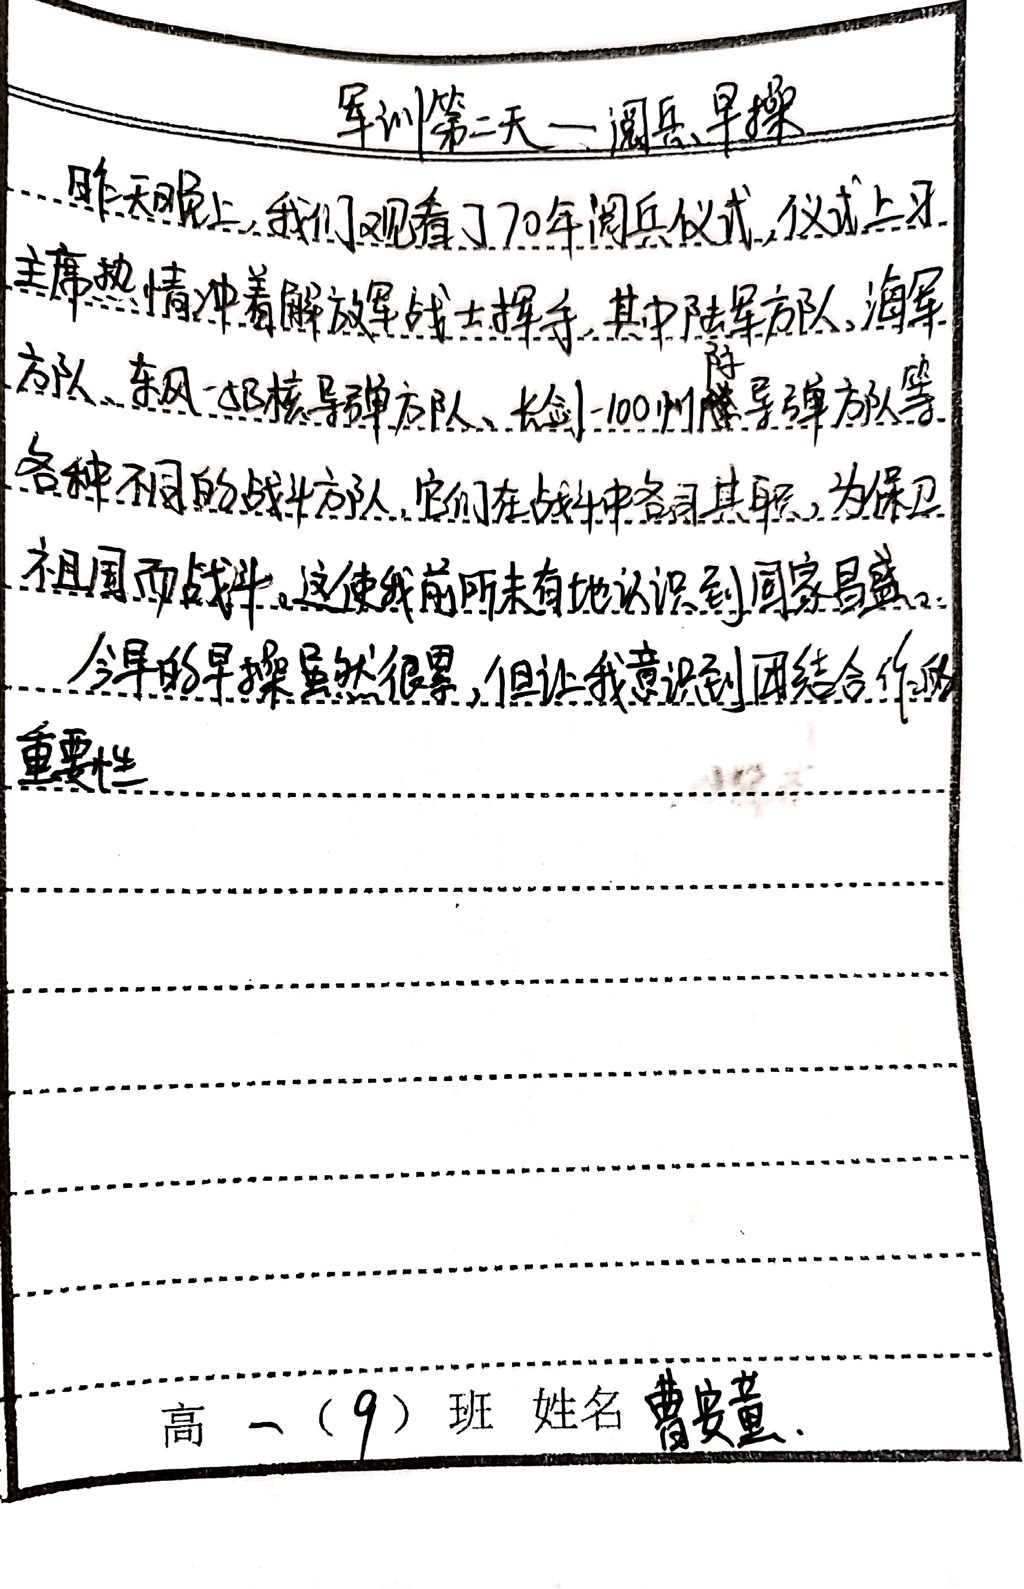 军训第二天——阅兵、早操
昨天晚上,我们观看了70年阅兵仪式,仪式上习
主席热情冲着解放军战士挥手,其中陆军方队、海军
方队、东风-5B核导弹方队、长剑-100巡航导弹方队等
各种不同的战斗方队,它们在战斗中各司其职,为保卫
祖国而战斗。这使我前所未有地认识到国家昌盛。
今早的早操虽然很累,但让我意识到团结合作的
重要性
高一(9)班 姓名 曹安童.